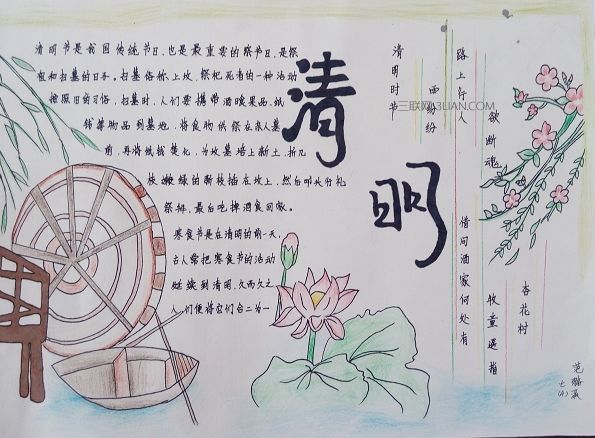 清明节是我国传统节日,也是最重要的祭节日,是祭
祖和扫墓的日子。扫墓俗称上坟,祭祀死者的一种活动
按照旧的习俗,扫墓时,人们要携带酒食果品、纸
钱等物品到墓地,将食物供祭在亲人墓
前,再将纸钱焚化,为坟墓培上新土,折几
枝嫩绿的新枝插在坟上,然后叩头行礼
祭拜,最后吃掉酒食回家。
寒食节是在清明的前一天,
古人常把寒食节的活动
延续到清明,久而久之
人们便将它们合二为一
清明
清明时节
雨纷纷
路上行人
欲断魂
借问酒家何处有
牧童遥指
杏花村
三联网 3LIAN.COM